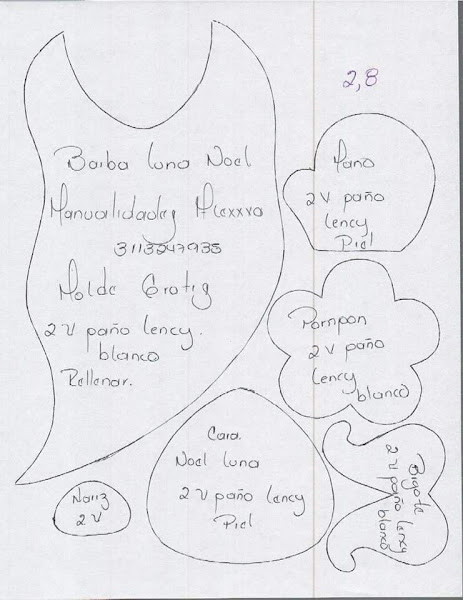 2,8
Barba luna Noel
Manualidades Alexxva
3113247935
Molde Gratis
2 V paño lency.
blanco
Rellenar.
Mano
2 V paño
lency
Piel
Pompon
2 V paño
lency
blanco
Cara.
Noel luna
2 V paño lency
Piel
Nariz
2 V
Bigote
2 V paño lency
blanco